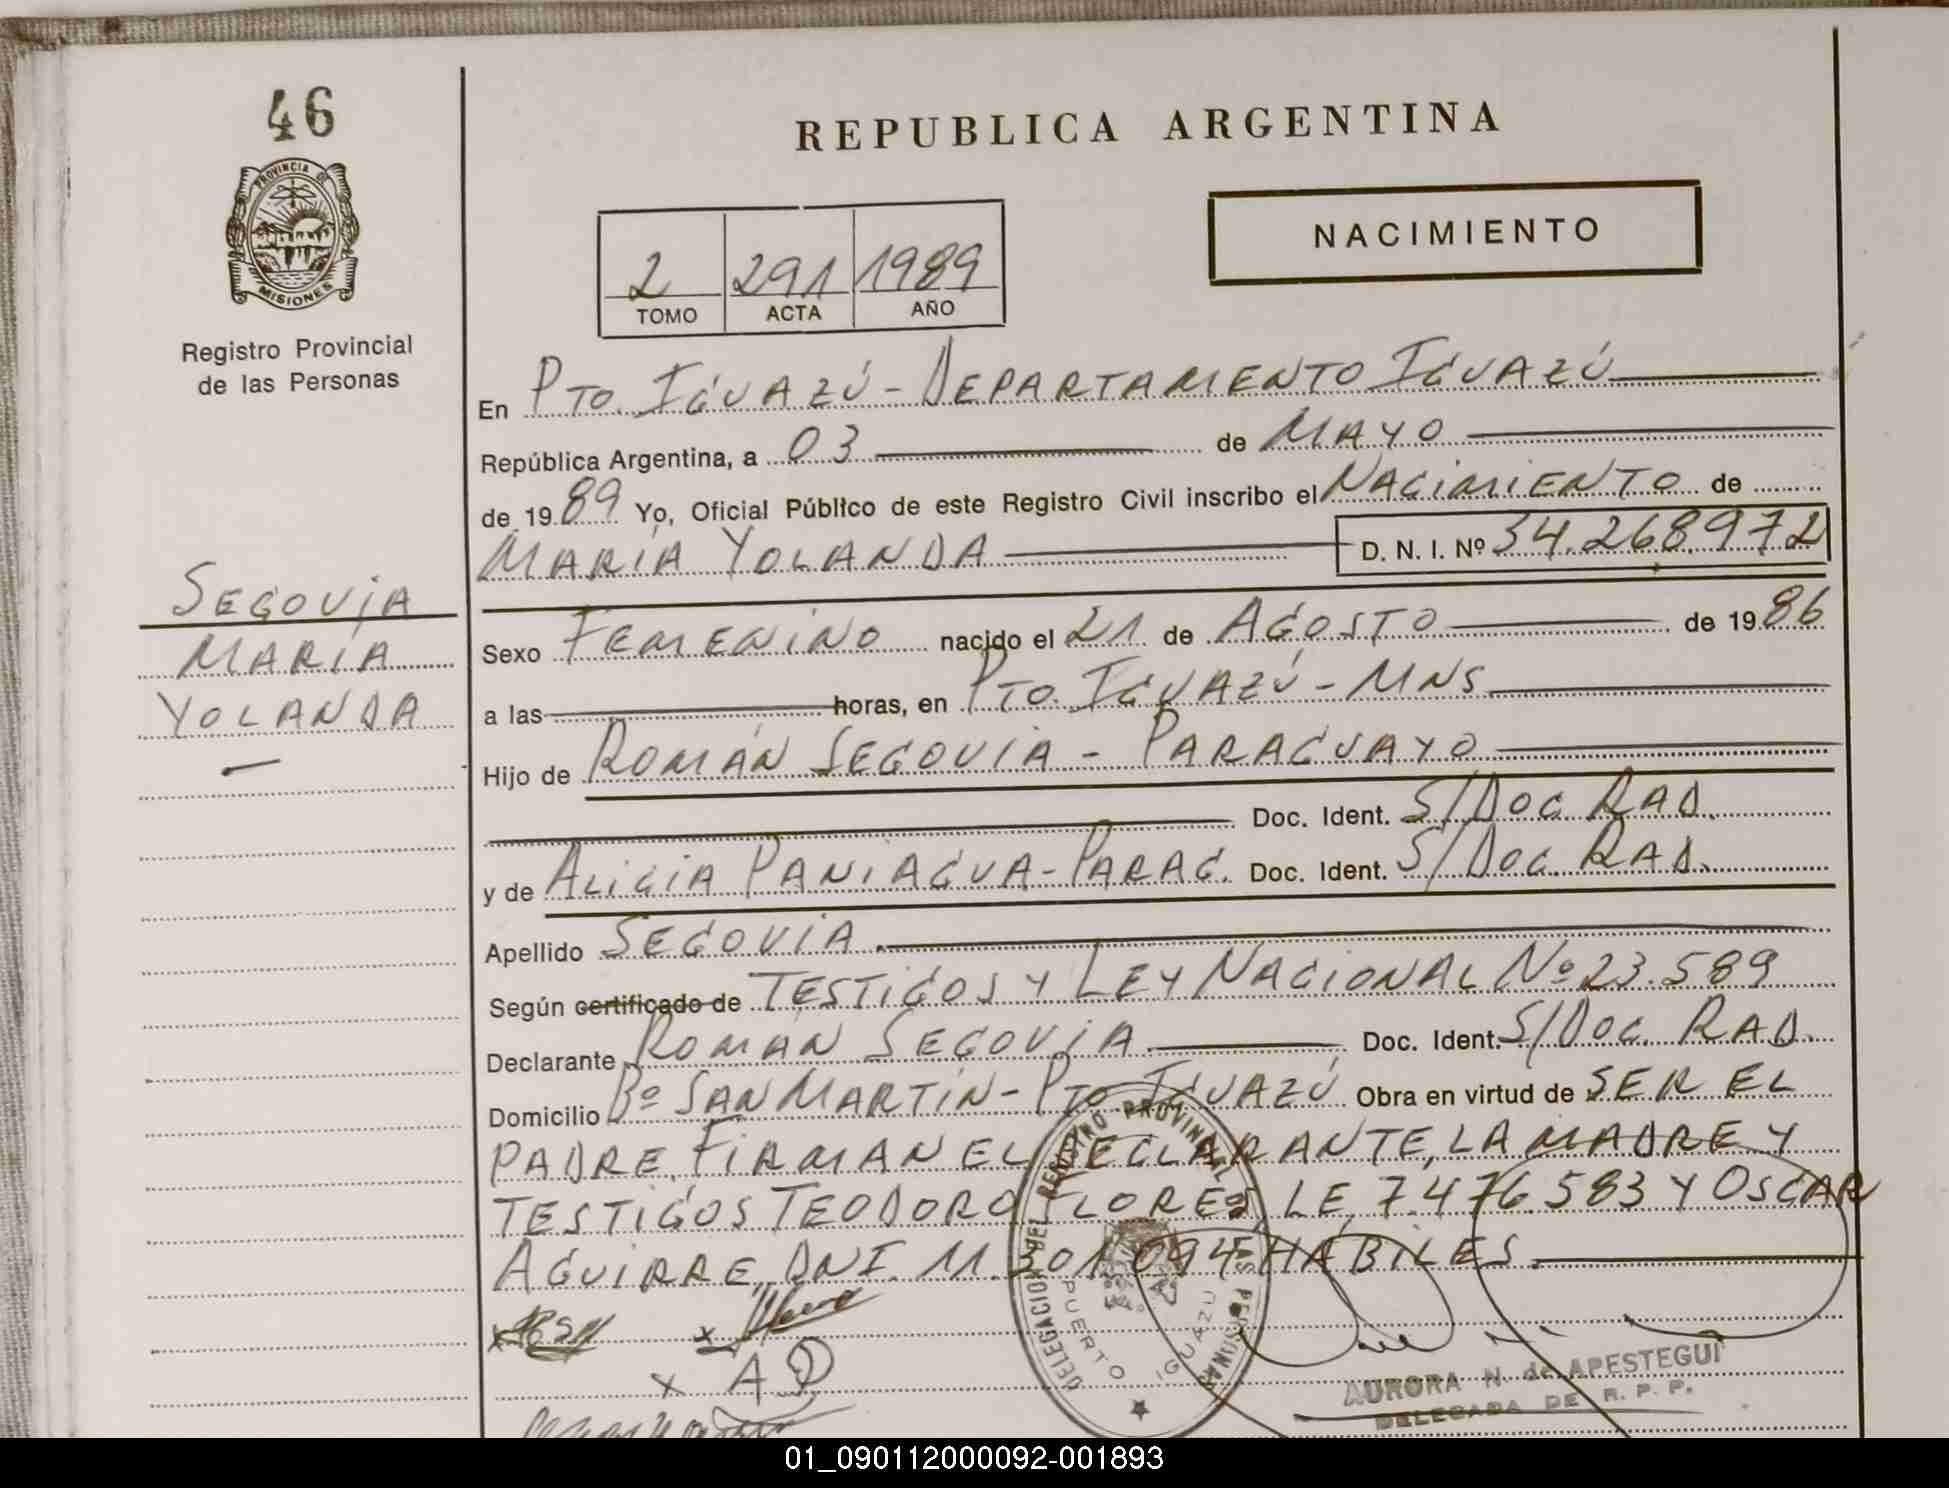 46
PROVINCIA DE
MISIONES
Registro Provincial
de las Personas
SEGOVIA
MARÍA
YOLANDA
REPUBLICA ARGENTINA
NACIMIENTO
2 291 1989
TOMO ACTA AÑO
En PTO. IGUAZÚ - DEPARTAMENTO IGUAZÚ
República Argentina, a 03 de MAYO
de 1989 Yo, Oficial Público de este Registro Civil inscribo el NACIMIENTO de
MARÍA YOLANDA D. N. I. Nº 34.268.972
Sexo FEMENINO nacido el 21 de AGOSTO de 1986
a las horas, en PTO. IGUAZÚ - MNS
Hijo de ROMÁN SEGOVIA - PARAGUAYO
Doc. Ident. S/DOC RAD.
y de ALICIA PANIAGUA - PARAG. Doc. Ident. S/DOC. RAD.
Apellido SEGOVIA.
Según certificado de TESTIGOS Y LEY NACIONAL Nº 23.589
Declarante ROMÁN SEGOVIA Doc. Ident. S/DOC. RAD.
Domicilio Bº SAN MARTÍN - PTO IGUAZÚ Obra en virtud de SER EL
PADRE, FIRMAN EL DECLARANTE, LA MADRE Y
TESTIGOS TEODORO FLORES, LE, 7.476.583 Y OSCAR
AGUIRRE, DNI. 11.301.094 HÁBILES.
DELEGACION DEL REGISTRO PROVINCIAL DE LAS PERSONAS
PUERTO IGUAZU
x x
x AP
AURORA N. de APESTEGUI
DELEGADA DE R. P. P.
01_090112000092-001893